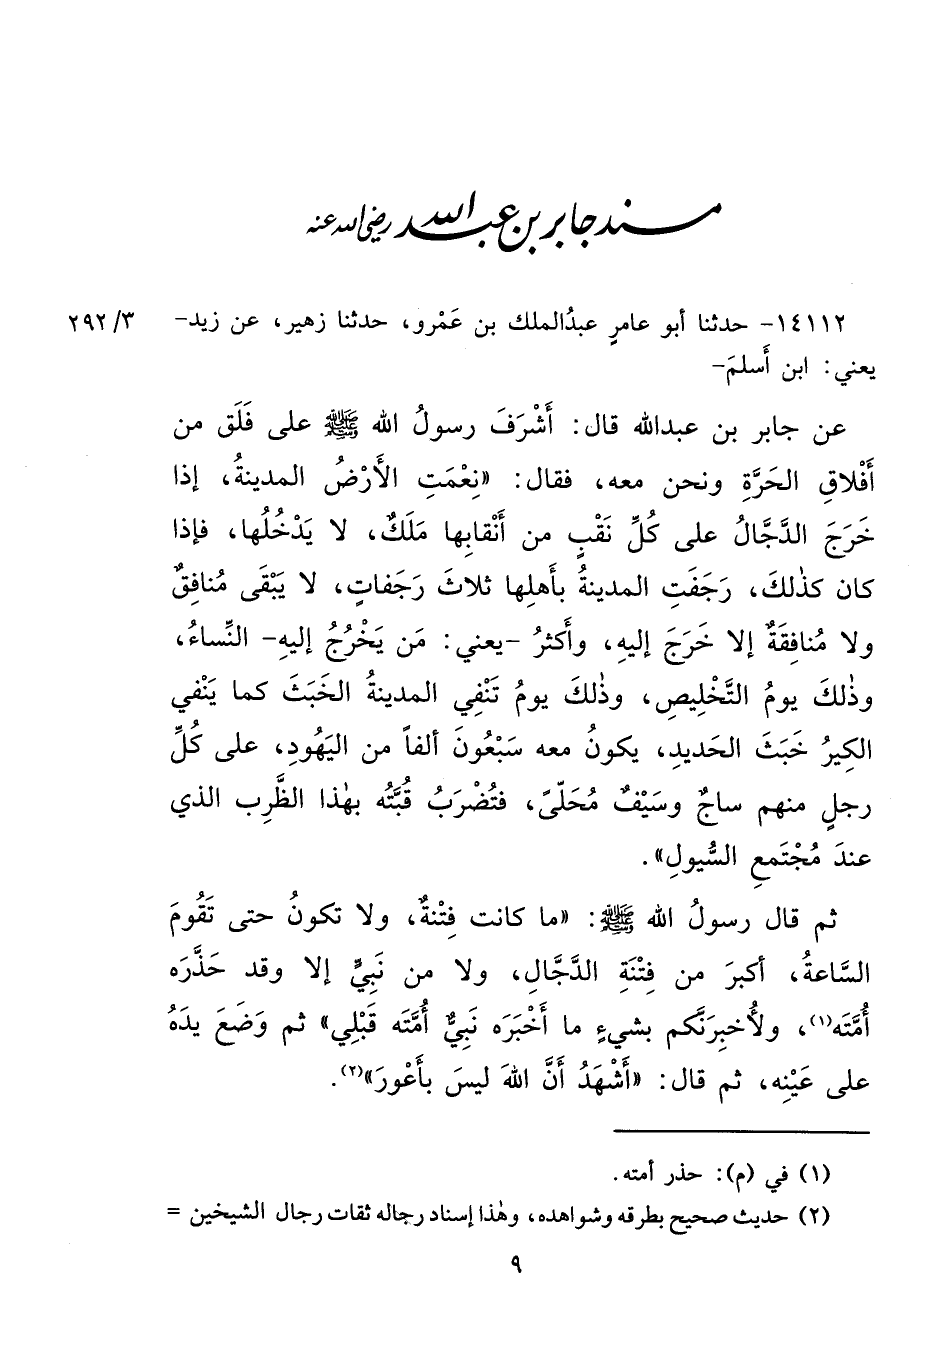 مسند جابر بن عبد الله رضي الله عنه
١٤١١٢- حدثنا أبو عامرٍ عبدُالملك بن عَمْرو، حدثنا زهير، عن زيد- ٢٩٢/٣
يعني: ابن أَسلمَ-
عن جابر بن عبدالله قال: أَشْرَفَ رسولُ الله ﷺ على فَلَق من
أَفْلاقِ الحَرَّةِ ونحن معه، فقال: «نِعْمَتِ الأَرْضُ المدينةُ، إذا
خَرَجَ الدَّجَّالُ على كُلِّ نَقْبٍ من أَنْقابِها مَلَكٌ، لا يَدْخُلُها، فإذا
كان كذٰلكَ، رَجَفَتِ المدينةُ بأَهلِها ثلاثَ رَجَفاتٍ، لا يَبْقَى مُنافِقٌ
ولا مُنافِقَةٌ إلا خَرَجَ إليهِ، وأَكثرُ -يعني: مَن يَخْرُجُ إليهِ- النِّساءُ،
وذٰلكَ يومُ التَّخْلِيصِ، وذٰلكَ يومُ تَنْفِي المدينةُ الخَبَثَ كما يَنْفي
الكِيرُ خَبَثَ الحَديدِ، يكونُ معه سَبْعُونَ ألفاً من اليَهُودِ، على كُلِّ
رجلٍ منهم ساجٌ وسَيْفٌ مُحَلّىً، فتُضْرَبُ قُبَّتُه بهٰذا الظَّرِب الذي
عندَ مُجْتَمعِ السُّيولِ».
ثم قال رسولُ الله ﷺ: «ما كانت فِتْنةٌ، ولا تكونُ حتى تَقُومَ
السَّاعةُ، أكبرَ من فِتْنَةِ الدَّجَّالِ، ولا من نَبِيٍّ إلا وقد حَذَّرَه
أُمَّتَه(١)، ولأُخبِرَنَّكم بشيءٍ ما أَخْبَرَه نَبِيٌّ أُمَّتَه قَبْلِي» ثم وَضَعَ يدَهُ
على عَيْنِه، ثم قال: «أَشْهَدُ أَنَّ اللهَ ليسَ بأَعْورَ»(٢).
(١) في (م): حذر أمته.
(٢) حديث صحيح بطرقه وشواهده، وهٰذا إسناد رجاله ثقات رجال الشيخين =
٩